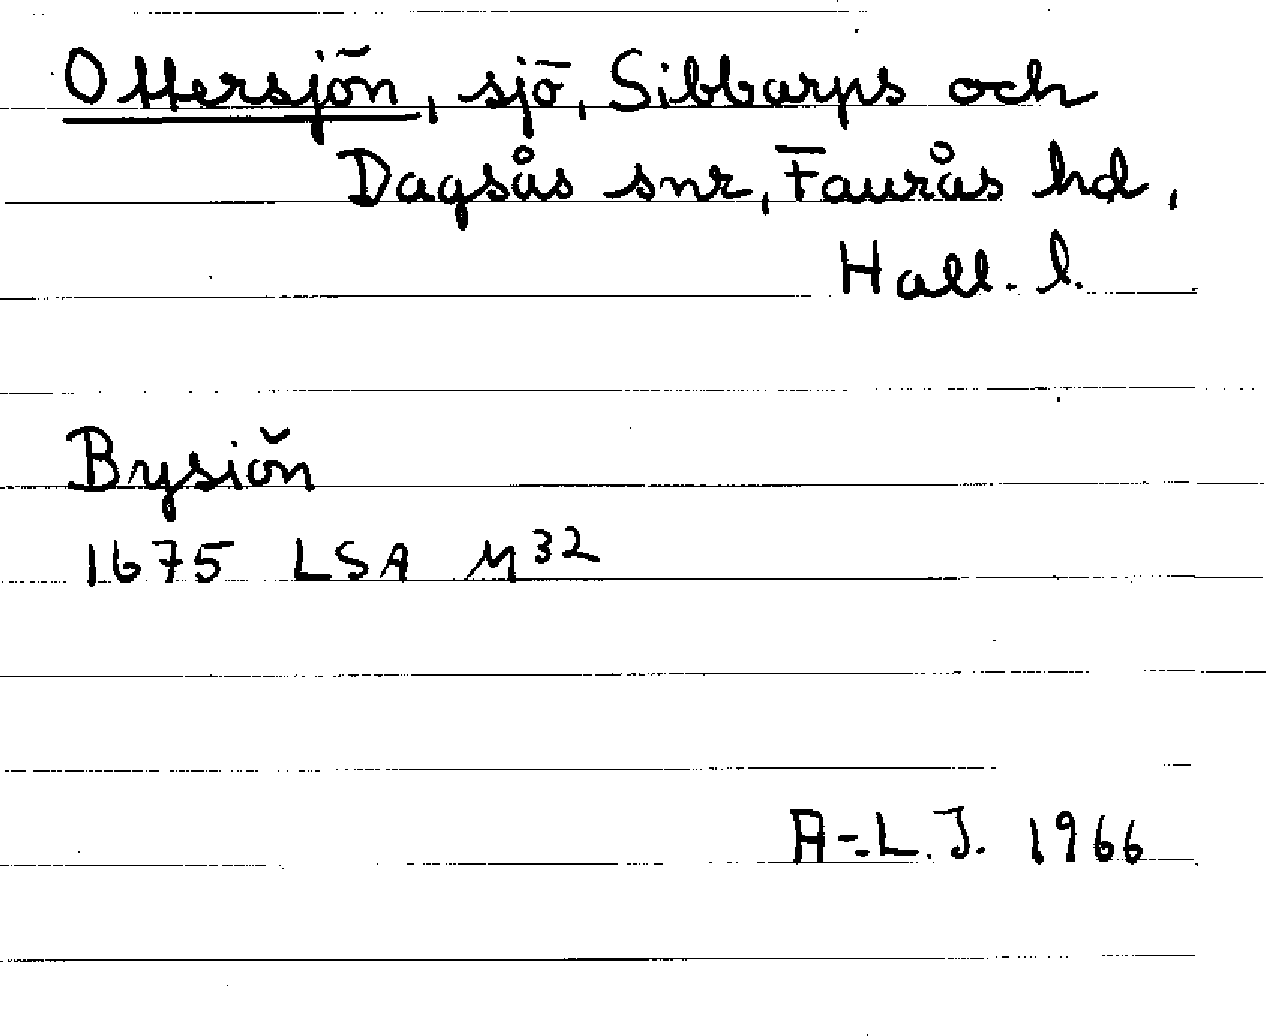 Ottersjön, sjö, Sibbarps och
Dagsås snr, Faurås hd,
Hall. l.
Bysiön
1675 LSA M32
A-L.J. 1966